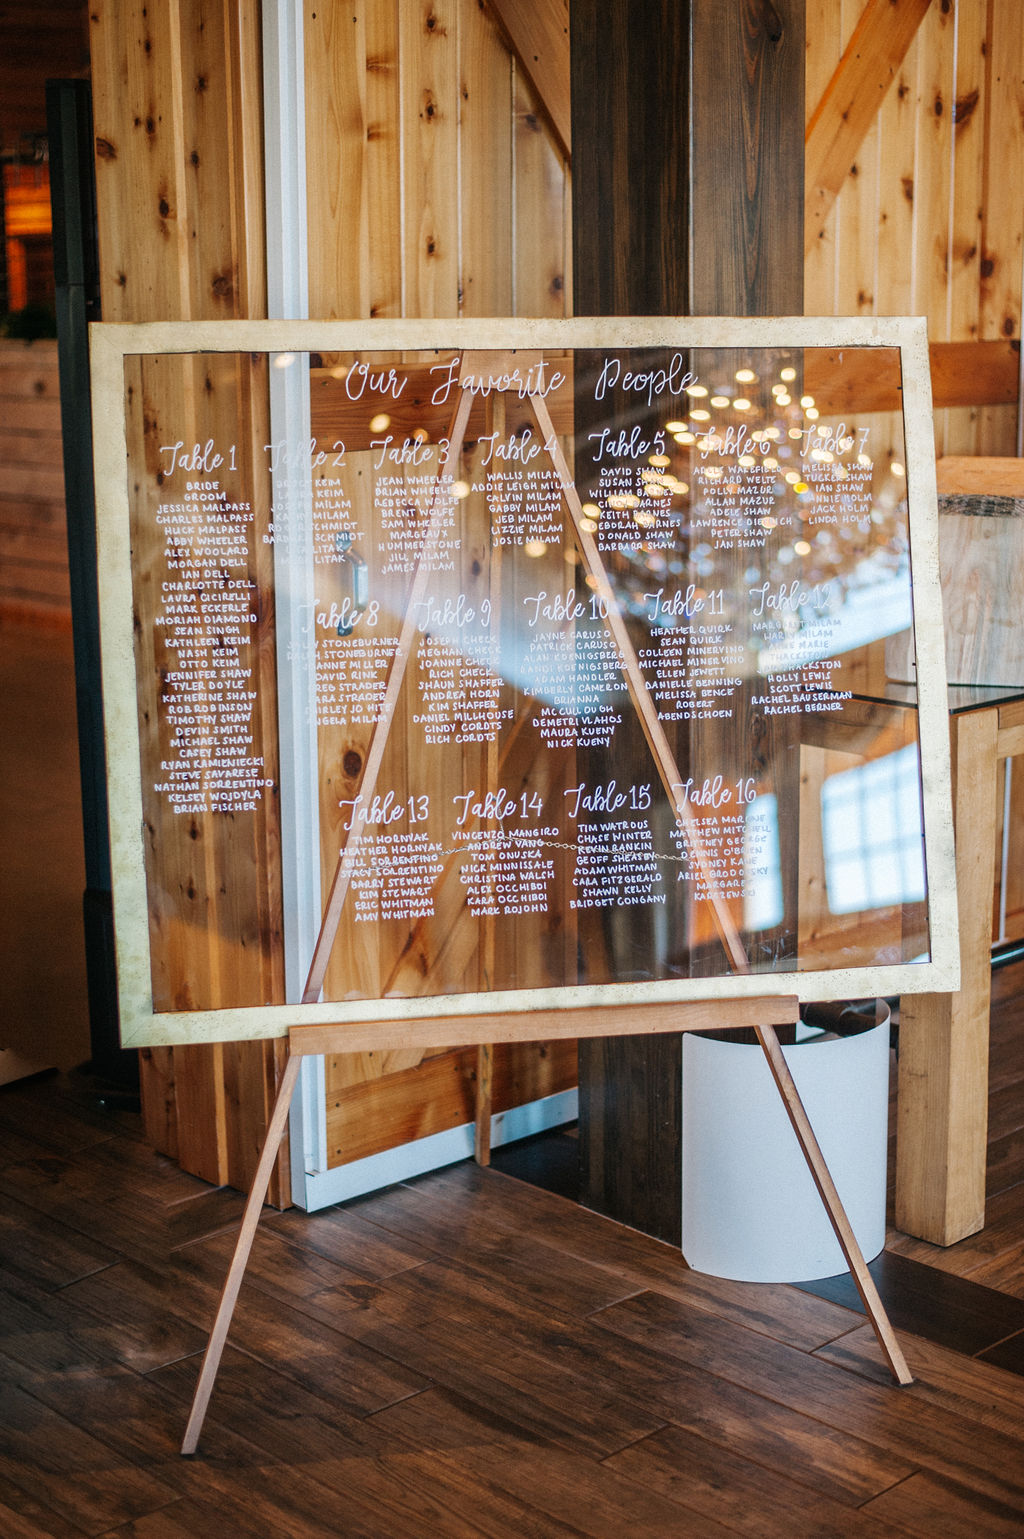 Our Favorite People
Table 1
BRIDE
GROOM
JESSICA MALPASS
CHARLES MALPASS
HUCK MALPASS
ABBY WHEELER
ALEX WOOLARD
MORGAN DELL
IAN DELL
CHARLOTTE DELL
LAURA CICIRELLI
MARK ECKERLE
MORIAH DIAMOND
SEAN SINGH
KATHLEEN KEIM
NASH KEIM
OTTO KEIM
JENNIFER SHAW
TYLER DOYLE
KATHERINE SHAW
ROB ROBINSON
TIMOTHY SHAW
DEVIN SMITH
MICHAEL SHAW
CASEY SHAW
RYAN KAMIENIECKI
STEVE SAVARESE
NATHAN SORRENTINO
KELSEY WOJDYLA
BRIAN FISCHER
Table 2
KEIM
LAURA KEIM
MILAM
MILAM
SCHMIDT
BARBARA SCHMIDT
LITAK
LITAK
Table 3
JEAN WHEELER
BRIAN WHEELER
REBECCA WOLFE
BRENT WOLFE
SAM WHEELER
MARGEAUX
HUMMERSTONE
JILL MILAM
JAMES MILAM
Table 4
WALLIS MILAM
ADDIE LEIGH MILAM
CALVIN MILAM
GABBY MILAM
JEB MILAM
LIZZIE MILAM
JOSIE MILAM
Table 5
DAVID SHAW
SUSAN SHAW
WILLIAM BARNES
CINDY BARNES
KEITH BARNES
DEBORAH BARNES
DONALD SHAW
BARBARA SHAW
Table 6
WAKEFIELD
RICHARD WELTE
POLLY MAZUR
ALLAN MAZUR
ADELE SHAW
LAWRENCE DIETRICH
PETER SHAW
JAN SHAW
Table 7
MELISSA SHAW
TUCKER SHAW
IAN SHAW
ANNIE HOLM
JACK HOLM
LINDA HOLM
Table 8
STONEBURNER
RALPH STONEBURNER
JOANNE MILLER
DAVID RINK
STRADER
STRADER
SHIRLEY JO HITE
ANGELA MILAM
Table 9
JOSEPH CHECK
MEGHAN CHECK
JOANNE CHECK
RICH CHECK
SHAUN SHAFFER
ANDREA HORN
KIM SHAFFER
DANIEL MILLHOUSE
CINDY CORDTS
RICH CORDTS
Table 10
JAYNE CARUSO
PATRICK CARUSO
ALAN KOENIGSBERG
RANDI KOENIGSBERG
ADAM HANDLER
KIMBERLY CAMERON
BRIANNA
MCCULLOUGH
DEMETRI VLAHOS
MAURA KUENY
NICK KUENY
Table 11
HEATHER QUIRK
SEAN QUIRK
COLLEEN MINERVINO
MICHAEL MINERVINO
ELLEN JEWETT
DANIELLE BENNING
MELISSA BENCE
ROBERT
ABENDSCHOEN
Table 12
MARGARET MILAM
MILAM
MARIE
THACKSTON
THACKSTON
HOLLY LEWIS
SCOTT LEWIS
RACHEL BAUSERMAN
RACHEL BERNER
Table 13
TIM HORNYAK
HEATHER HORNYAK
BILL SORRENTINO
STACY SORRENTINO
BARRY STEWART
KIM STEWART
ERIC WHITMAN
AMY WHITMAN
Table 14
VINCENZO MANGIRO
ANDREW VANG
TOM ONUSKA
NICK MINNISSALE
CHRISTINA WALSH
ALEX OCCHIBOI
KARA OCCHIBOI
MARK ROJOHN
Table 15
TIM WATROUS
CHASE WINTER
KEVIN RANKIN
GEOFF SHEASBY
ADAM WHITMAN
CARA FITZGERALD
SHAWN KELLY
BRIDGET CONGANY
Table 16
CHELSEA MARONE
MATTHEW MITCHELL
BRITTNEY GEORGE
DENNIS O'BRIEN
SYDNEY KANE
ARIEL BRODOFSKY
MARGARET
KARZEWSKI